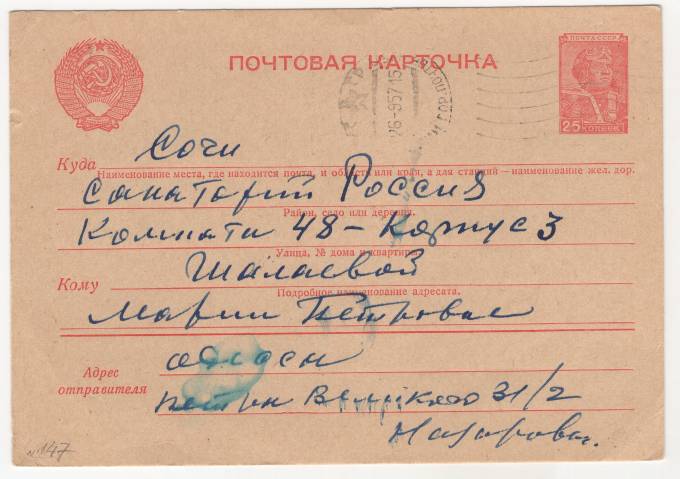 ПОЧТА СССР
ПОЧТОВАЯ КАРТОЧКА
26-9-57 15
25 КОПЕЕК
Куда Сочи
Наименование места, где находится почта, и области или края, а для станций—наименование жел. дор.
Санаторий Россия
Район, село или деревня.
Комната 48 – Корпус 3
Улица, № дома и квартиры
Кому Шалаевой
Подробное наименование адресата.
Марии Петровне
Адрес отправителя
Одессы
Петра Великого 31/2
Назарова.
№147